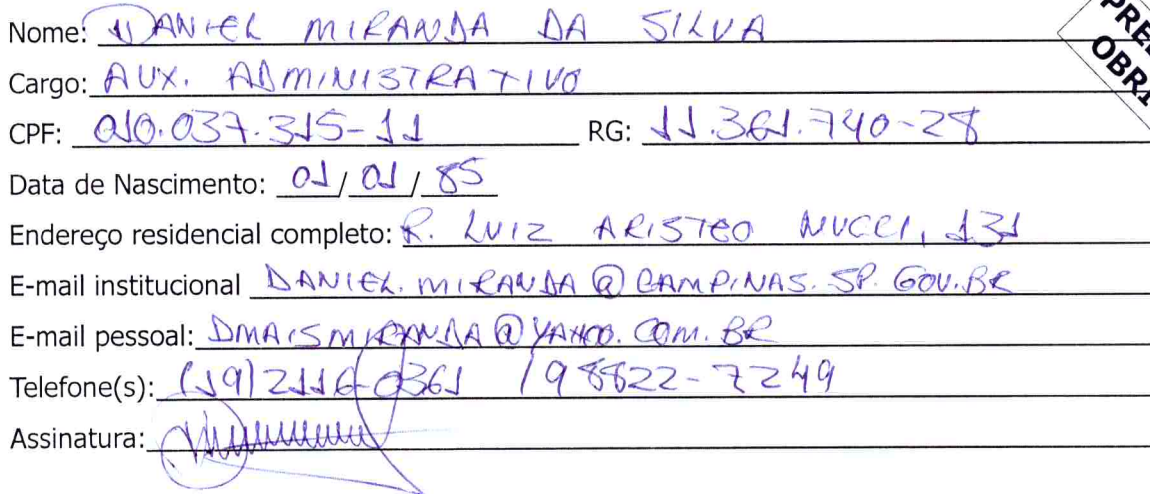 Nome: DANIEL MIRANDA DA SILVA
Cargo: AUX. ADMINISTRATIVO
CPF: 010.037.315-11 RG: 11.361.740-28
Data de Nascimento: 01/01/85
Endereço residencial completo: R. LUIZ ARISTEO NUCCI, 131
E-mail institucional DANIEL.MIRANDA@CAMPINAS.SP.GOV.BR
E-mail pessoal: DMAISMIRANDA@YAHOO.COM.BR
Telefone(s): (19)2116-0361 / 98822-7249
Assinatura: